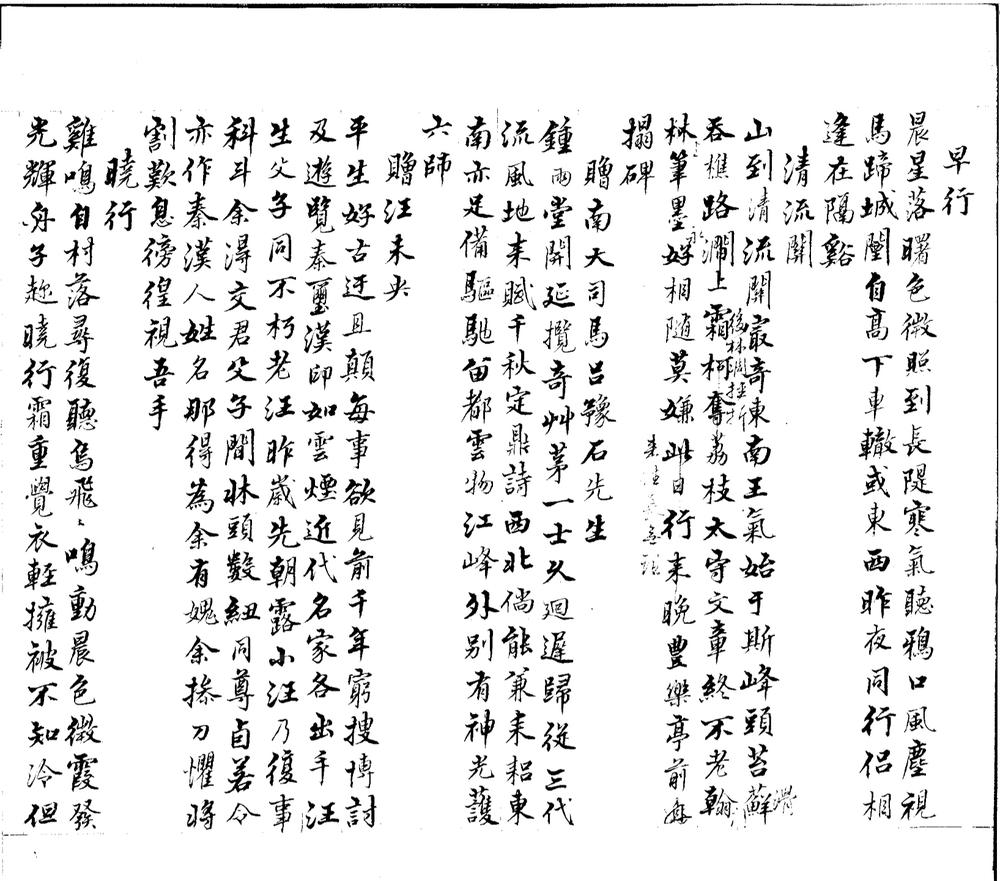 早行
晨星落曙色微照到長隄寒氣聽鴉口風塵視
馬蹄城闉自高下車轍或東西昨夜同行侶相
逢在隔谿
清流關
山到清流關最奇東南王氣始于斯峰頭苔蘚
吞樵路澗上霜柯奪荔枝太守文章終不老翰
林筆墨好相隨莫嫌此日行來晚豐樂亭前每
搨碑
贈南大司馬呂豫石先生
鍾雨堂開延攬奇艸茅一士久迴遲歸從三代
流風地來賦千秋定鼎詩西北倘能兼耒耜東
南亦足備驅馳留都雲物江峰外別有神光護
六師
贈汪未央
平生好古迂且顛每事欲見前千年窮搜博討
及遊覽秦璽漢印如雲煙近代名家各出手汪
生父子同不朽老汪昨歲先朝露小汪乃復事
科斗余得交君父子間牀頭數紐同尊卣若令
亦作秦漢人姓名那得為余有媿余捺刀懼將
割歎息徬徨視吾手
曉行
雞鳴自村落尋復聽烏飛飛鳴動晨色微霞發
光輝舟子趂曉行霜重覺衣輕擁被不知冷但